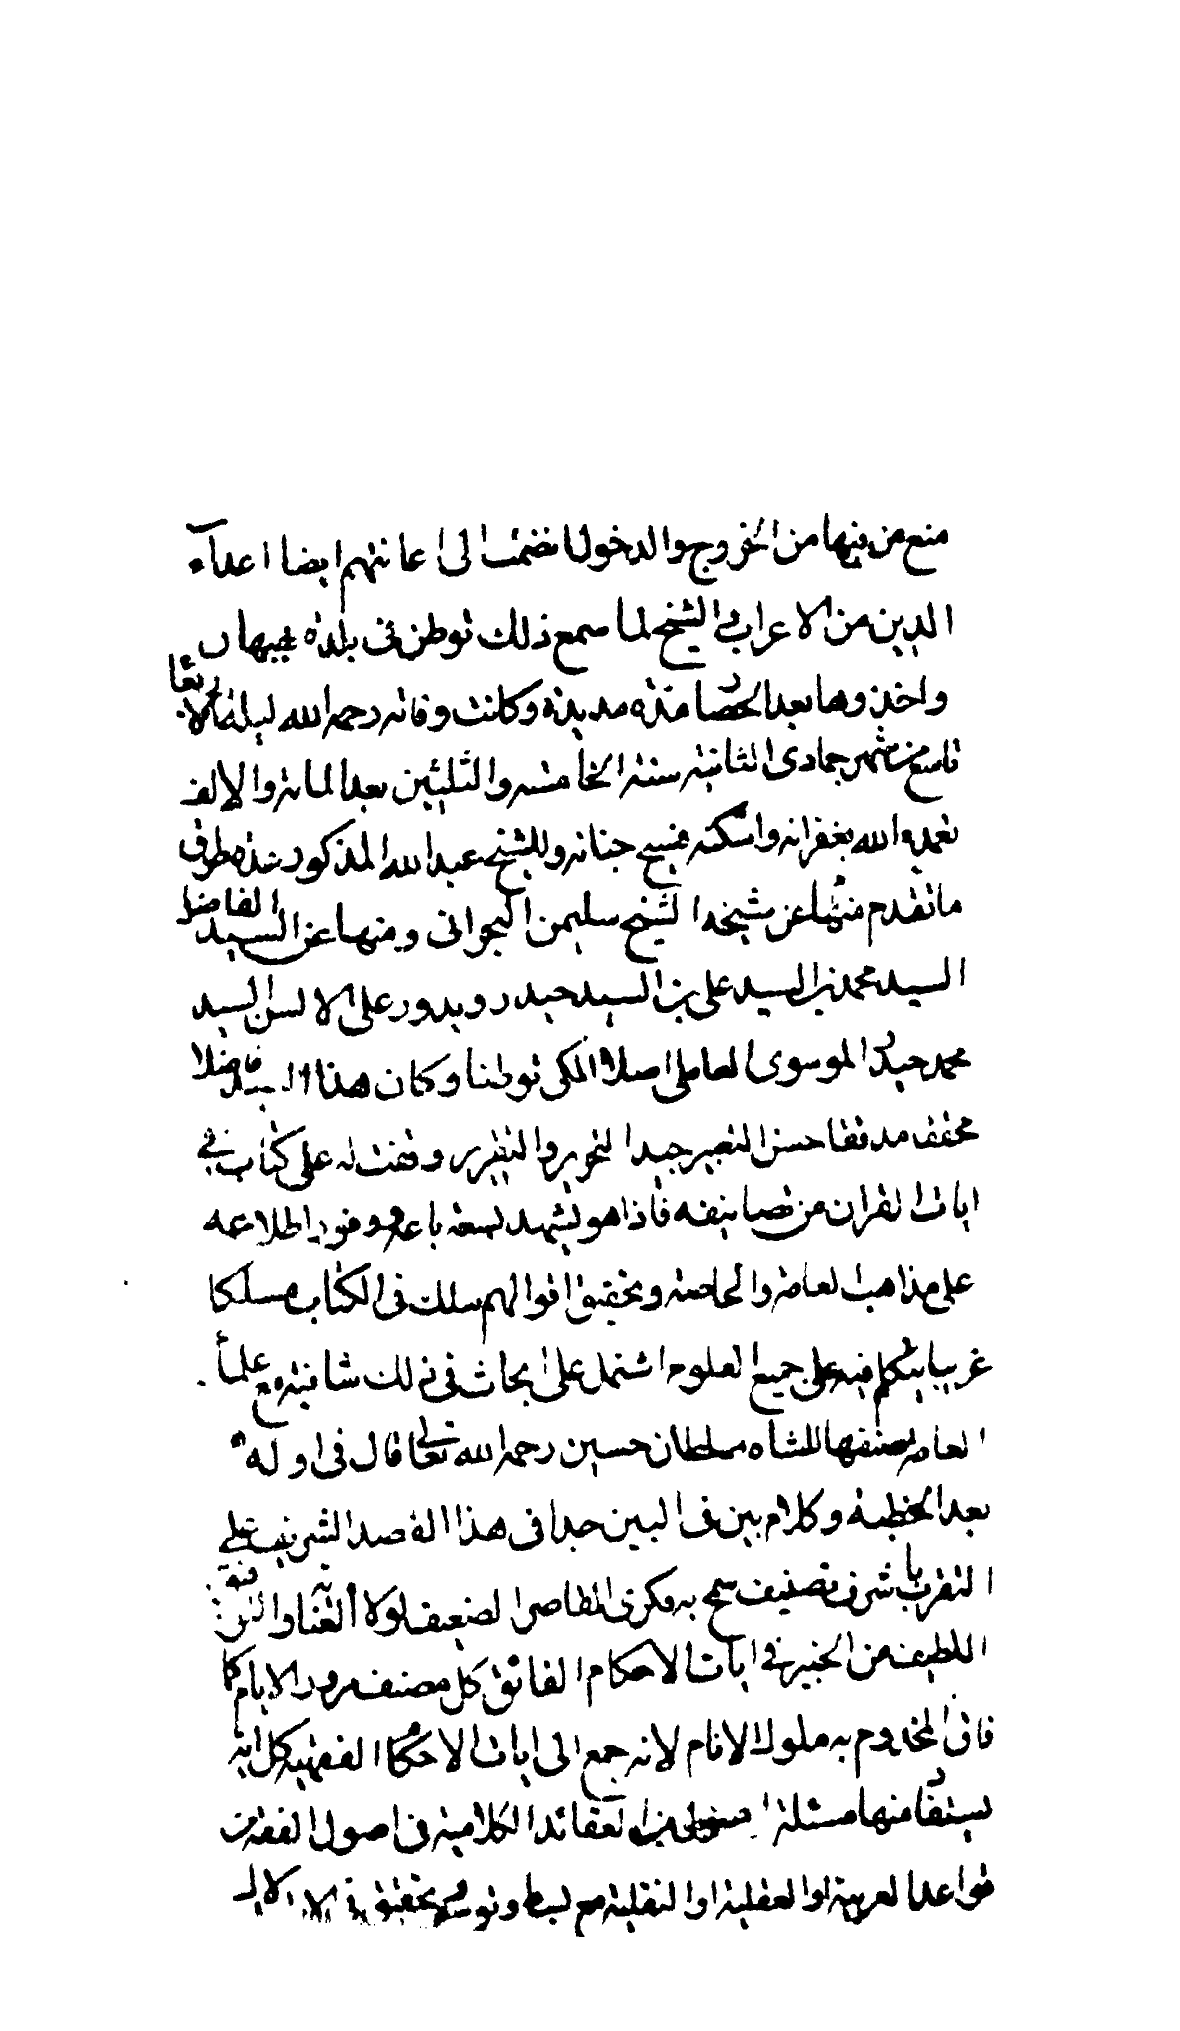 منع من فيها من الخروج والدخول انضمت الى اعانتهم ايضا اعداء
الدين من الاعراب الشيخ لما سمع ذلك توطن في بلدة بهبهان
واخذوها بعد الحصار مدة مديدة وكانت وفاته رحمه الله ليلة الاربعا
تاسع من شهر جمادى الثانية سنة الخامسة والثلثين بعد المائة والالف
تغمده الله بغفرانه واسكنه فسيح جنانه وللشيخ عبد الله المذكور عدة طرق
ما تقدم منها عن شيخه الشيخ سليمن البحراني ومنها عن السيد الفاضل
السيد محمد بن السيد علي بن السيد حيدر ويدور على الالسن السيد
محمد حيدر الموسوي العاملي اصلا المكي توطنا وكان هذا السيد فاضلا
محققا مدققا حسن التعبير جيد التحرير والتقرير وقفت له على كتاب في
ايات القران من تصانيفه فاذا هو يشهد بسعة باعه ووفور اطلاعه
على مذاهب العامة والخاصة وتحقيق اقوالهم سلك في الكتاب مسلكا
غريبا يتكلم فيه على جميع العلوم اشتمل على ابحاث في ذلك شافية مع علماء
العامة صنفها للشاه سلطان حسين رحمه الله تعالى قال في اوله
بعد الخطبة وكلام بين في البين حدا في هذا القصد الشريف على
التقرب بشرف تصنيف سمح به فكري القاصر الضعيف لولا العناية والتوفيق
اللطيف من الخبير في ايات الاحكام الفائق كل مصنف مرور الايام كما
فاق المخدوم به ملوك الانام لانه جمع الى ايات الاحكام الفقهية كل اية
يستفاد منها مسئلة من العقائد الكلامية في اصول الفقه من
قواعد العربية او العقلية او النقلية مع بسط وتوسع تحقيق